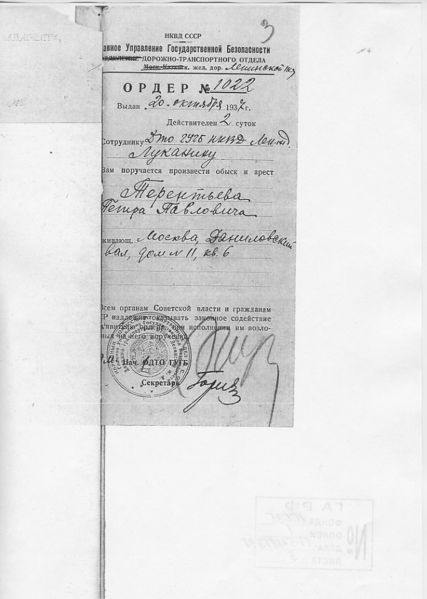 3
НКВД СССР
авное Управление Государственной Безопасности
ОТДЕЛЕНИЕ ДОРОЖНО-ТРАНСПОРТНОГО ОТДЕЛА
жел. дор. Ленинской ж/д
ОРДЕР № 1022
Выдан 20 октября 1937 г.
Действителен 2 суток
Сотруднику ДТО ГУГБ НКВД Ленжд
Луканину
Вам поручается произвести обыск и арест
Терентьева
Петра Павловича
живающ. Москва, Даниловский
вал, дом № 11, кв. 6
Всем органам Советской власти и гражданам
СР надлежит оказывать законное содействие
ъявителю ордера при исполнении им возло-
ных на него поручений
Нач. ОДТО ГУГБ
Секретарь
ГАРФ
ФОНД
ОПИСИ
ДЕЛА
ЛИСТА
№